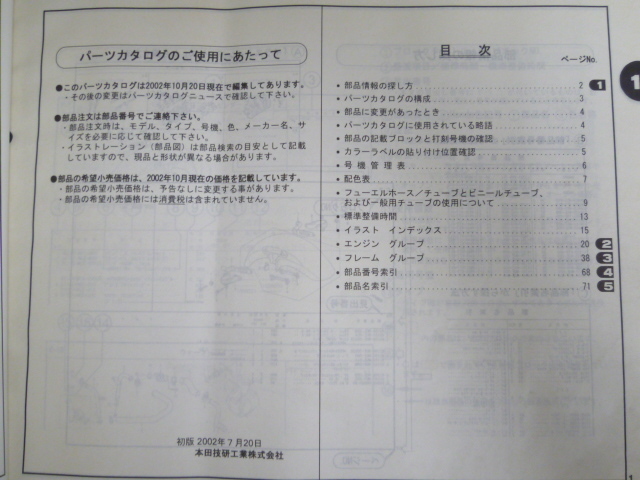 パーツカタログのご使用にあたって
●このパーツカタログは2002年10月20日現在で編集してあります。
・その後の変更はパーツカタログニュースで確認して下さい。
●部品注文は部品番号でご連絡下さい。
・部品注文時は、モデル、タイプ、号機、色、メーカー名、サ
イズを必要に応じて確認して下さい。
・イラストレーション（部品図）は部品検索の目安として記載
していますので、現品と形状が異なる場合があります。
●部品の希望小売価格は、2002年10月現在の価格を記載しています。
・部品の希望小売価格は、予告なしに変更する事があります。
・部品の希望小売価格には消費税は含まれていません。
初版 2002年7月20日
本田技研工業株式会社
目 次
ページNo.
• 部品情報の探し方 2 1
• パーツカタログの構成 3
• 部品に変更があったとき 4
• パーツカタログに使用されている略語 4
• 部品の記載ブロックと打刻号機の確認 5
• カラーラベルの貼り付け位置確認 5
• 号 機 管 理 表 6
• 配色表 7
• フューエルホース／チューブとビニールチューブ、
および一般用チューブの使用について 9
• 標準整備時間 13
• イラスト インデックス 15
• エンジン グループ 20 2
• フレーム グループ 38 3
• 部品番号索引 68 4
• 部品名索引 71 5
1
1